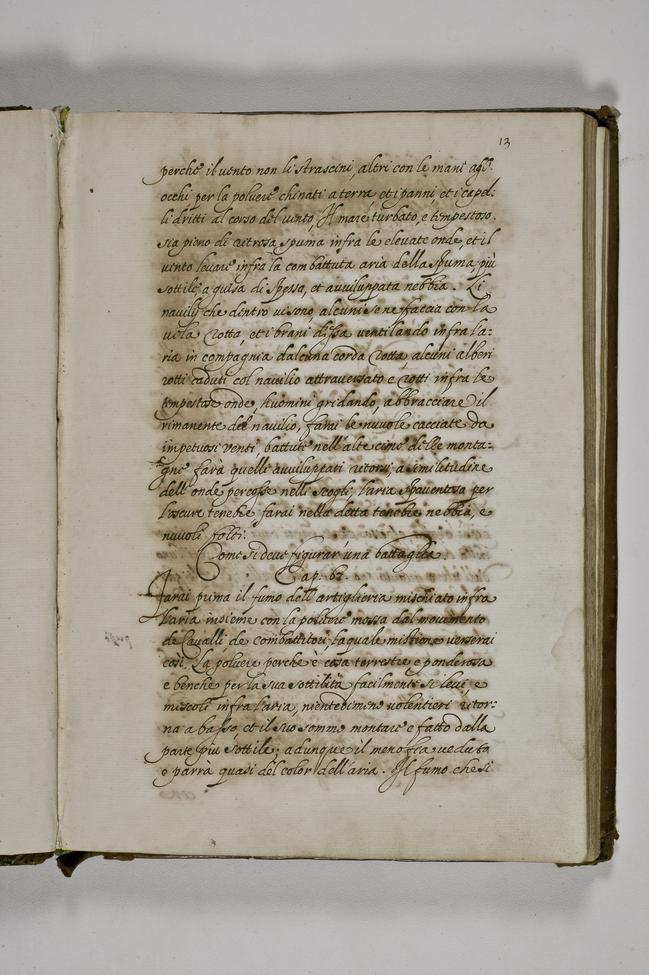 13
perche il vento non li strascini, altri con le mani agl'
occhi per la polvere chinati a terra, et i panni, et i capel:
li dritti al corso del vento, Il mare turbato, e tempestoso,
sia pieno di ritrosa spuma infra le elevate onde, et il
vento levare infra la combattuta aria della spuma, più
sottile a guisa di spessa, et avviluppata nebbia. Li
navilij che dentro vi sono, alcuni se ne faccia con la
vela rotta, et i brani d'essa ventilando infra l'a:
ria in compagnia d'alcuna corda rotta, alcuni alberi
rotti caduti col navilio attraversato e rotti infra le
tempestose onde, huomini gridando, abbracciare il
rimanente del navilio, farai le nuvole cacciate da
impetuosi venti battute nell'alte cime delle monta:
gne farà quelli avviluppati ritorsi, a similitudine
dell'onde percosse nelli scogli, l'aria spaventosa per
l'oscure tenebre farai nella detta tenebre nebbia, e
nuvoli folti.
Come si deve figurar' una battaglia.
Cap. 67.
Farai prima il fumo dell'artiglieria mischiato infra
l'aria insieme con la polvere mossa dal movimento
de Cavalli de combattitori, la quale mistione userai
così. La polvere perche è cosa terrestre e ponderosa
e benche per la sua sottilità facilmente si levi, e
mescoli infra l'aria, nientedimeno volentieri ritor:
na a basso, et il suo sommo montare è fatto dalla
parte più sottile; adunque il meno fia veduta
e parrà quasi del color dell'aria. Il fumo che si